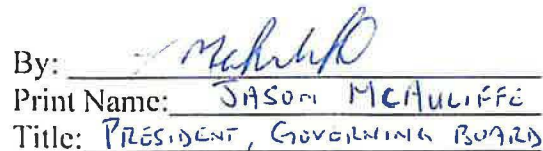 By:
Print Name: JASON MCAULIFFE
Title: PRESIDENT, GOVERNING BOARD